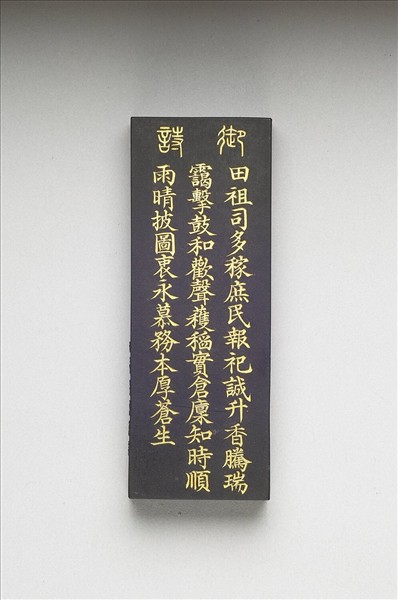 御詩
田祖司多稼庶民報祀誠升香騰瑞
靄擊鼓和歡聲穫稻實倉廩知時順
雨晴披圖衷永慕務本厚蒼生